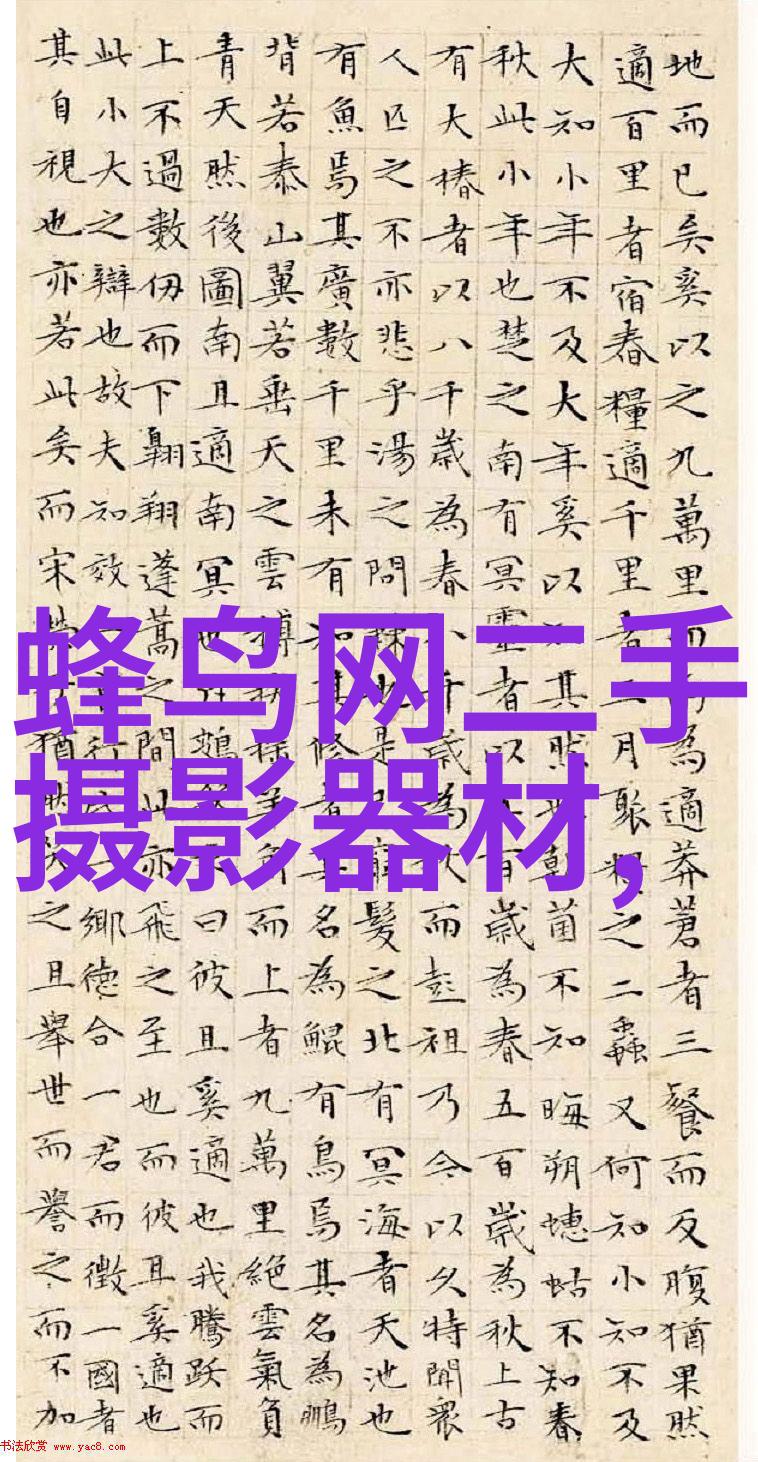 地而已矣奚以之九萬里為適莽蒼者三餐而反腹猶果然
適百里者宿舂糧適千里者三月聚糧之二蟲又何知小知不及
大知小年不及大年奚以其然朝菌不知晦朔蟪蛄不知春
秋此小年也楚之南有冥靈者以百歲為春五百歲為秋上古
有大椿者以八千歲為春八千歲為秋而彭祖乃今以久特聞眾
人匹之不亦悲乎湯之問是窮髮之北有冥海者天池也
有魚焉其廣數千里未有知其修者其名為鯤有鳥焉其名為鵬
背若泰山翼若垂天之雲摶羊角而上者九萬里絕雲氣負
青天然後圖南且適南冥也鴳曰彼且奚適也我騰躍而
上不過數仞而下翱翔蓬蒿之間此亦飛之至也而彼且奚適也
此小大之辯也故夫知效行一鄉德合一君而徵一國者
其自視也亦若此矣而宋猶之且舉世而譽之而不加
蜂鸟网二手
摄影器材,
书法欣赏 www.yac8.com